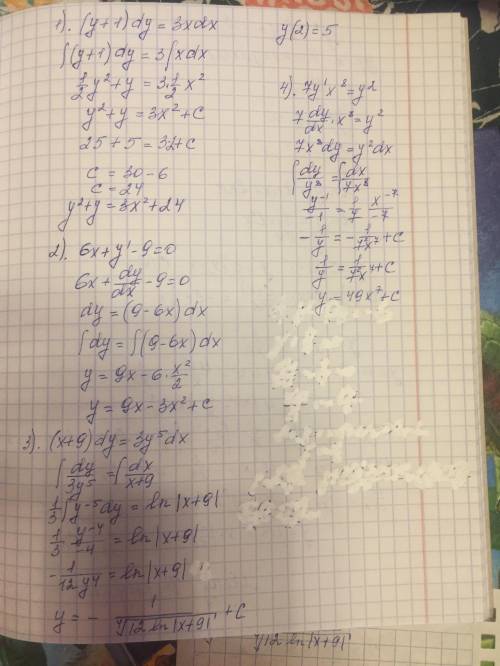 1). (y+1)dy = 3xdx
∫(y+1)dy = 3∫xdx
1/2 y² + y = 3·1/2 x²
y² + y = 3x² + C
25 + 5 = 3·2+C
C = 30 - 6
C = 24
y² + y = 3x² + 24
2). 6x + y' - 9 = 0
6x + dy/dx - 9 = 0
dy = (9 - 6x)dx
∫dy = ∫(9 - 6x)dx
y = 9x - 6·x²/2
y = 9x - 3x² + C
3). (x+9)dy = 3y⁵dx
∫dy/3y⁵ = ∫dx/x+9
1/3 ∫y⁻⁵dy = ln|x+9|
1/3 y⁻⁴/-4 = ln|x+9|
- 1/12y4 = ln|x+9|
y = - 1/⁴√12 ln|x+9| + C
y(2) = 5
4). 7y'x⁸ = y²
7 dy/dx · x⁸ = y²
7x⁸dy = y²dx
∫dy/y² = ∫dx/7x⁸
y⁻¹/-1 = 1/7 x⁻⁷/-7
- 1/y = - 1/7²x⁷ + C
1/y = 1/7²x⁷ + C
y = 49x⁷ + C
√12 ln|x+9|